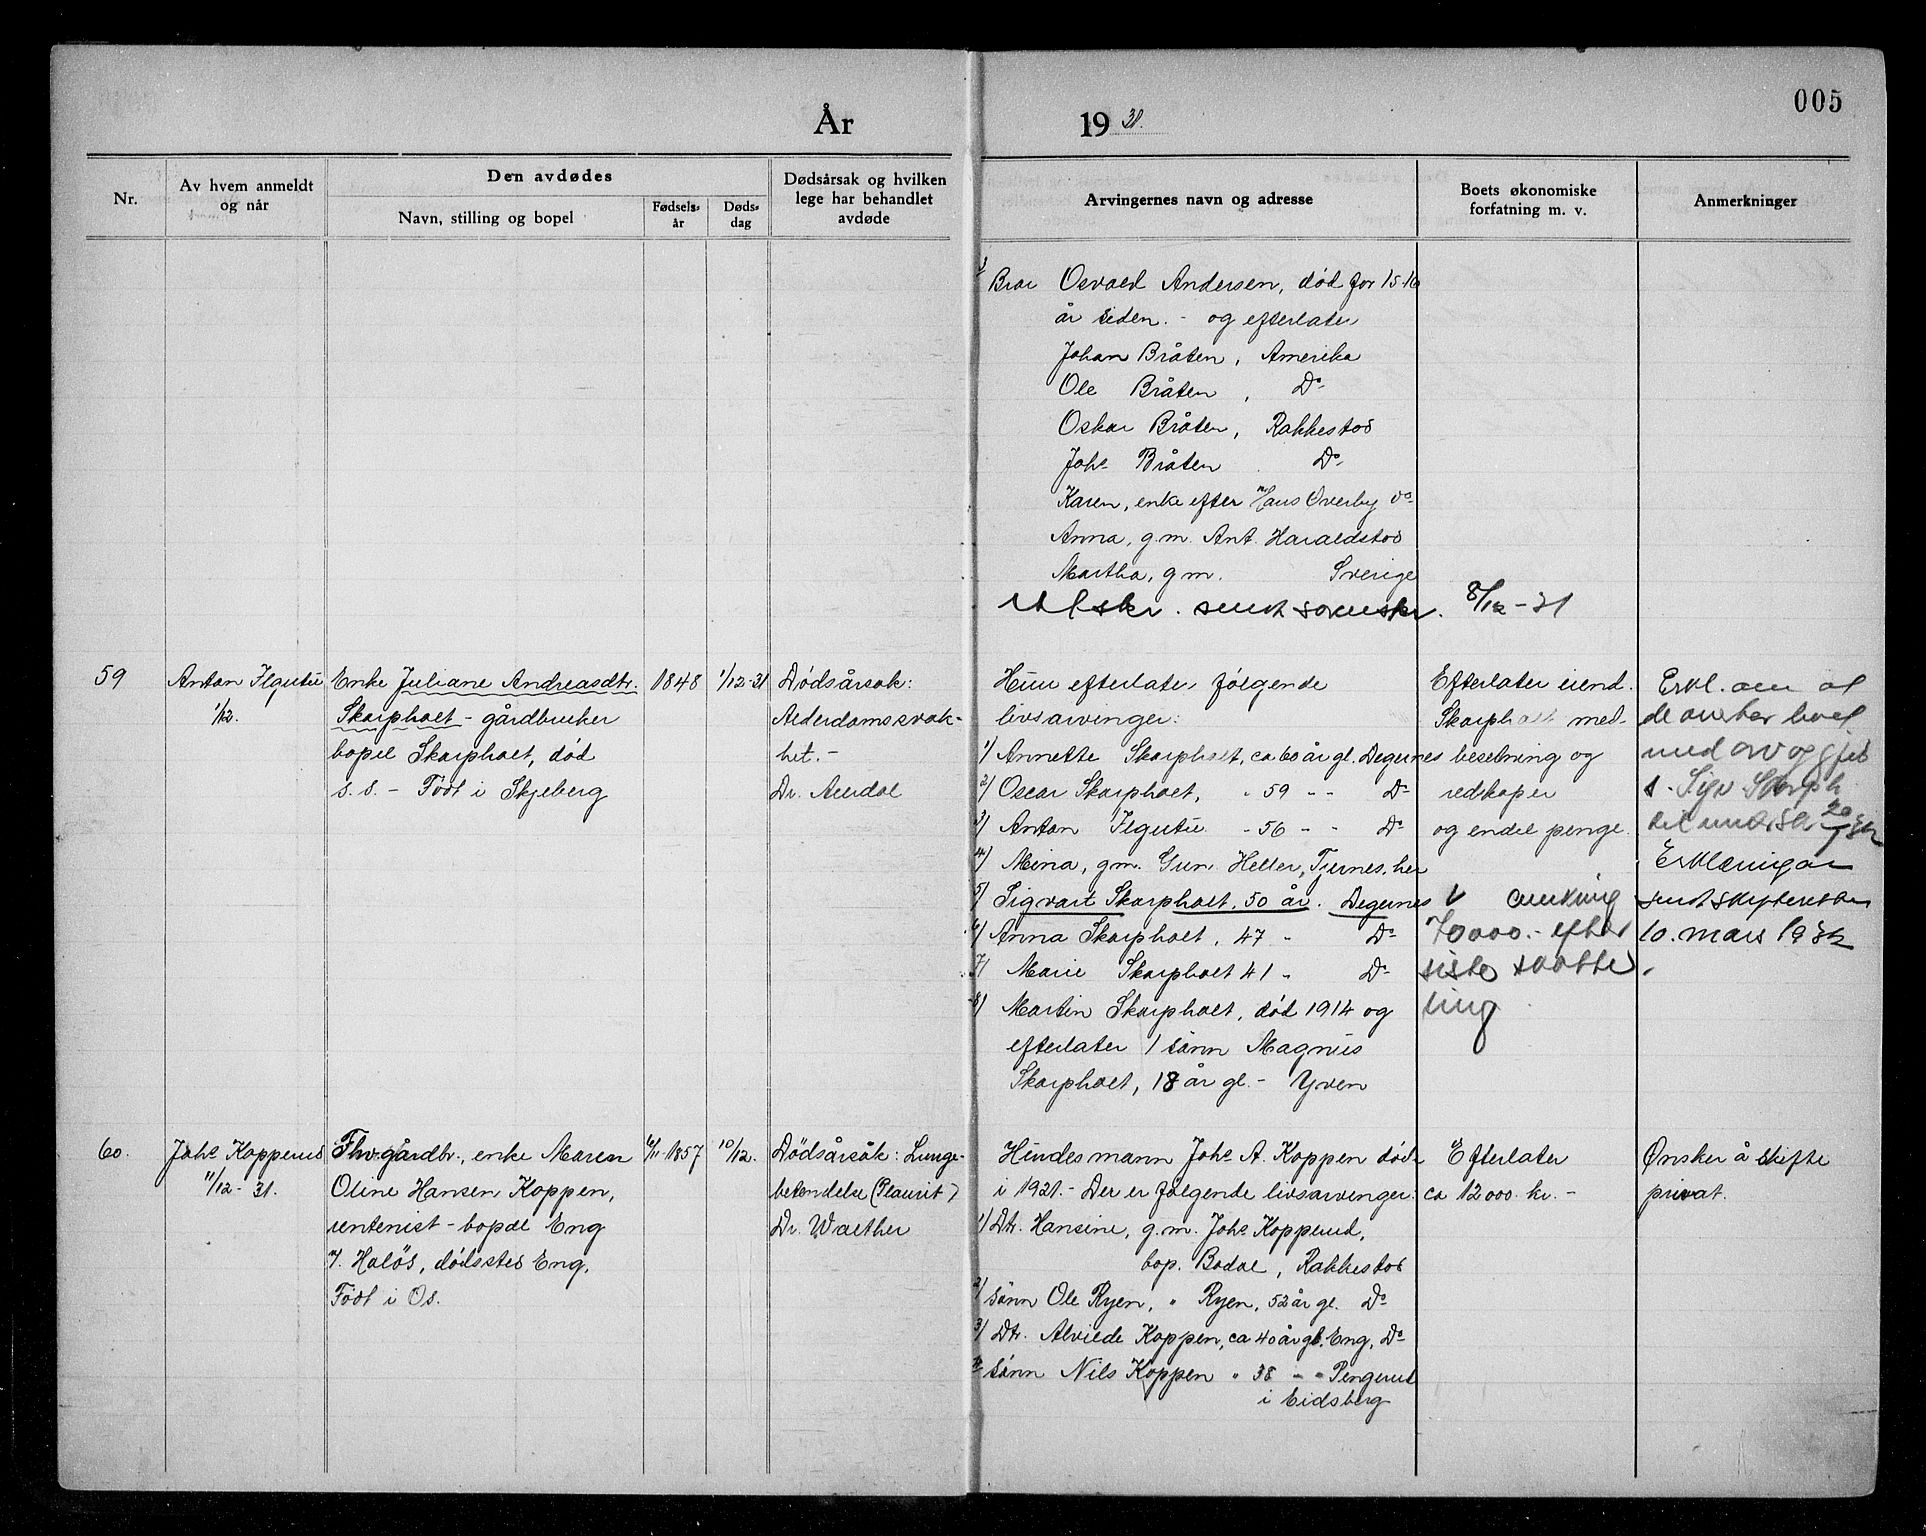 005
År 1931.
Nr.
Av hvem anmeldt
og når
Den avdødes
Navn, stilling og bopel
Fødsels-
år
Døds-
dag
Dødsårsak og hvilken
lege har behandlet
avdøde
Arvingernes navn og adresse
Boets økonomiske
forfatning m. v.
Anmerkninger
Bror Osvald Andersen, død for 15-16
år siden. - og efterlater
Johan Bråten, Amerika
Ole Bråten, Do
Oskar Bråten, Rakkestad
Johs Bråten Do
Karen, enke efter Hans Overby do
Anna, g.m. Ant. Haraldstad
Martha, g.m. Sverige
Utskr. sendt sorenskr. 8/12-31
59
Anton
1/12.
Enke Juliane Andreasdtr.
Skarpholt - gårdbruker
bopel Skarpholt, død
s. s. - Født i Skjeberg
1848
1/12-31
Dødsårsak:
Alderdomssvak-
het. -
Dr.
Hun efterlater følgende
livsarvinger:
1) Annette Skarpholt, ca 60 år gl. Degernes
2) Oscar Skarpholt, " 59 - - Do
3) Anton - 56 - - Do
4) Mina, g.m. Gun. Heller, Tjernes, her
5) Sigvart Skarpholt, 50 år. Degernes
6) Anna Skarpholt, 47 " Do
7) Marie Skarpholt 41 " Do
8) Martin Skarpholt, død 1914 og
efterlater 1 sønn Magnus
Skarpholt, 18 år gl. - Yven
Efterlater eiend.
Skarpholt med
besetning og
redskaper
og endel penge.
omkring
70000.- efter
siste skatte
ling
Erkl. om at
de overtar boet
med arv og gjel
Sigv Skarph
Erklæringen
sendt skifteretten
10. mars 1932
60.
Johs Kopperud
11/12-31.
Fhv. gårdbr., enke Maren
Oline Hansen Koppen,
rentenist - bopel Eng
. Haløs, dødssted Eng.
Født i Os.
6/11-1857
10/12.
Dødsårsåk: Lunge-
betendelse (Plaurit)
Dr. Walther
Hindes mann Johs A. Koppen døde
i 1921. - Der er følgende livsarvinger:
1) Dtr. Hansine, g.m. Johs Kopperud,
bop. Bodal, Rakkestad
2) sønn Ole Ryen, " Ryen, 52 år gl. Do
3) Dtr. Alvilde Koppen, ca 40 år gl. Eng, Do
4) sønn Nils Koppen " 38 " " Pengerud
i Eidsberg
Efterlater
ca 12000 kr. -
Ønsker å skifte
privat.